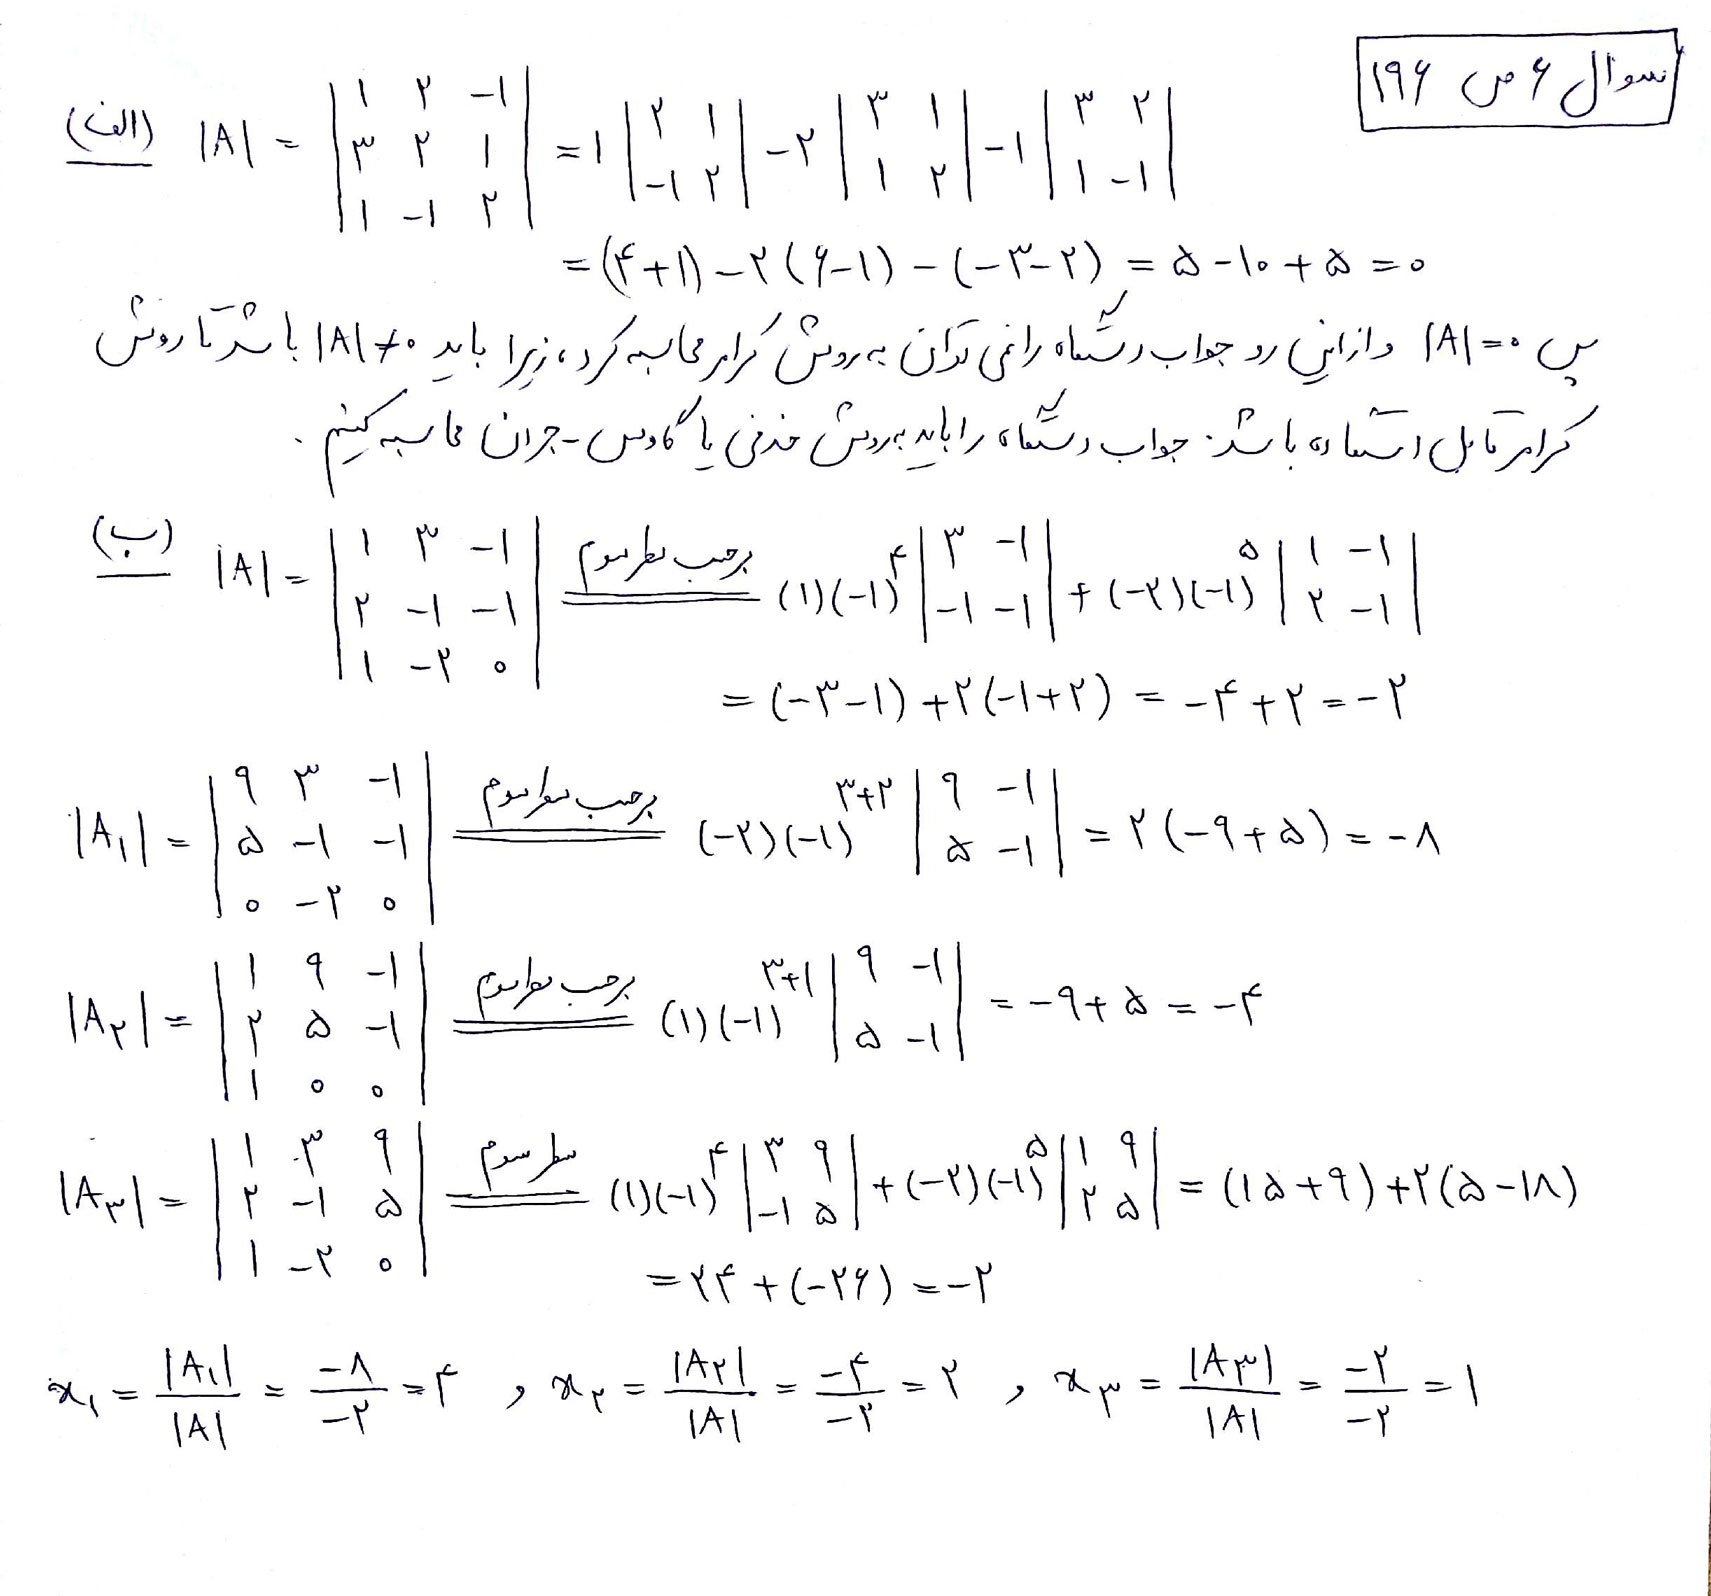 سوال ۶ ص ۱۹۶
الف) |A| = |۱ ۲ -۱; ۳ ۲ ۱; ۱ -۱ ۲| = ۱ |۲ ۱; -۱ ۲| - ۲ |۳ ۱; ۱ ۲| - ۱ |۳ ۲; ۱ -۱|
= (۴+۱) - ۲(۶-۱) - (-۳-۲) = ۵ - ۱۰ + ۵ = ۰
پس |A| = ۰ و از این رو جواب دستگاه را نمی توان به روش کرامر محاسبه کرد، زیرا باید |A| ≠ ۰ باشد تا روش
کرامر قابل استفاده باشد. جواب دستگاه را باید به روش حذفی یا گاوس - جردن محاسبه کنیم.
ب) |A| = |۱ ۳ -۱; ۲ -۱ -۱; ۱ -۲ ۰| برحسب سطر سوم = (۱)(-۱)^۴ |۳ -۱; -۱ -۱| + (-۲)(-۱)^۵ |۱ -۱; ۲ -۱|
= (-۳-۱) + ۲(-۱+۲) = -۴ + ۲ = -۲
|A₁| = |۹ ۳ -۱; ۵ -۱ -۱; ۰ -۲ ۰| برحسب سطر سوم = (-۲)(-۱)^۳+۲ |۹ -۱; ۵ -۱| = ۲(-۹+۵) = -۸
|A₂| = |۱ ۹ -۱; ۲ ۵ -۱; ۱ ۰ ۰| برحسب سطر سوم = (۱)(-۱)^۳+۱ |۹ -۱; ۵ -۱| = -۹+۵ = -۴
|A₃| = |۱ ۳ ۹; ۲ -۱ ۵; ۱ -۲ ۰| سطر سوم = (۱)(-۱)^۴ |۳ ۹; -۱ ۵| + (-۲)(-۱)^۵ |۱ ۹; ۲ ۵| = (۱۵+۹) + ۲(۵-۱۸)
= ۲۴ + (-۲۶) = -۲
x₁ = |A₁|/|A| = -۸/-۲ = ۴ , x₂ = |A₂|/|A| = -۴/-۲ = ۲ , x₃ = |A₃|/|A| = -۲/-۲ = ۱